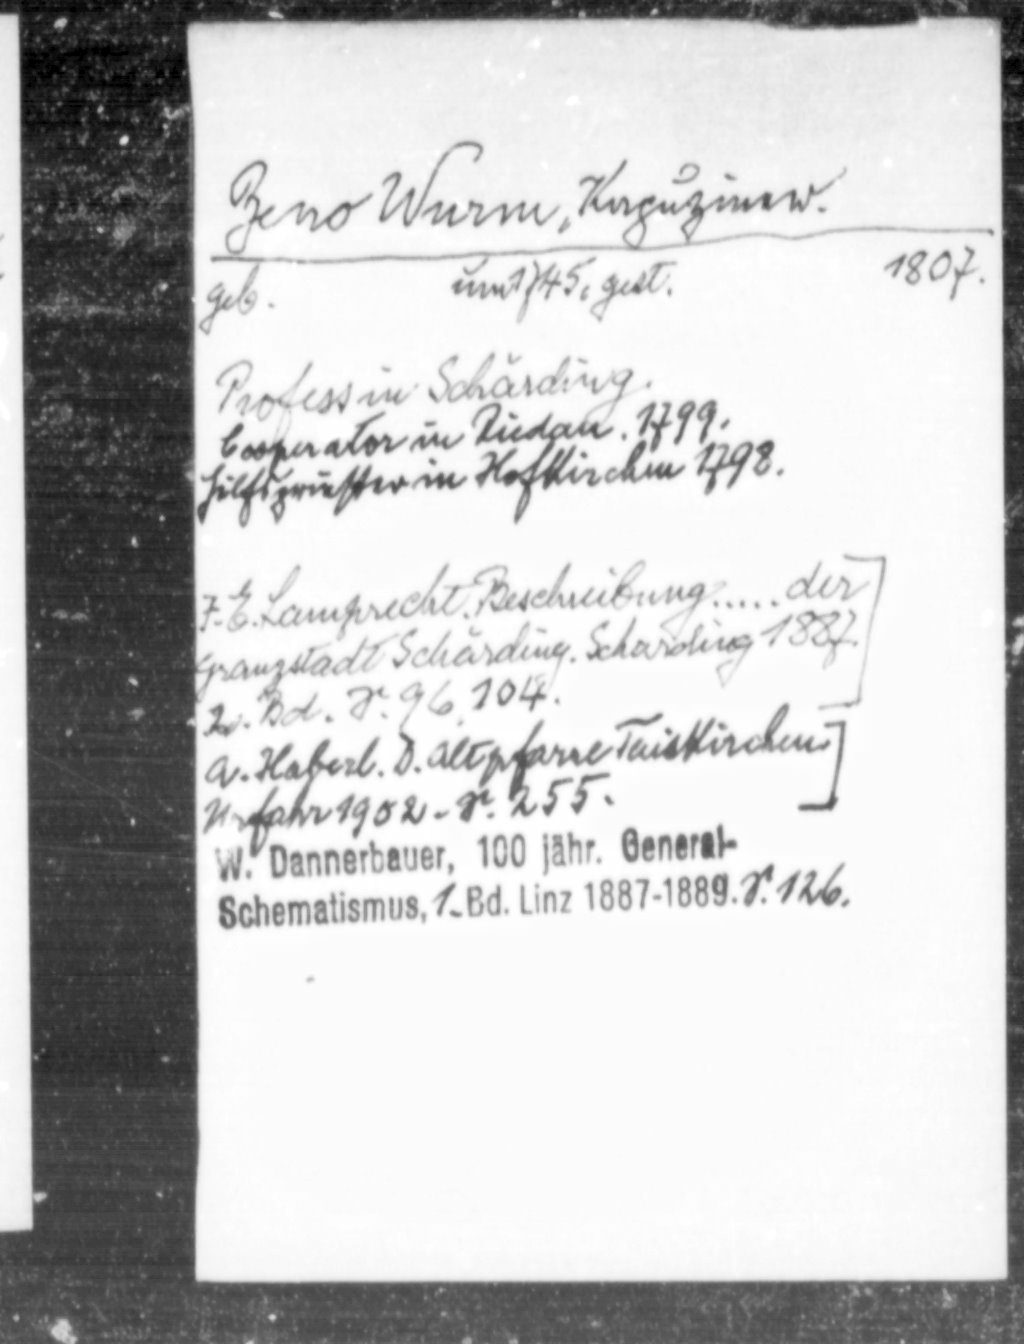 Zeno Wurm, Kapuziner.
geb. um 1745, gest. 1807.
Profess in Schärding.
Cooperator in Riedau. 1799.
Hilfspriester in Hofkirchen 1798.
J. E. Lamprecht. Beschreibung..... der
Granzstadt Schärding. Schärding 1887.
2. Bd. S. 96, 104.
A. Haberl. D. Altpfarre Taiskirchen.
Urfahr 1902 - S. 255.
W. Dannerbauer, 100 jähr. General-
Schematismus, 1. Bd. Linz 1887-1889. S. 126.